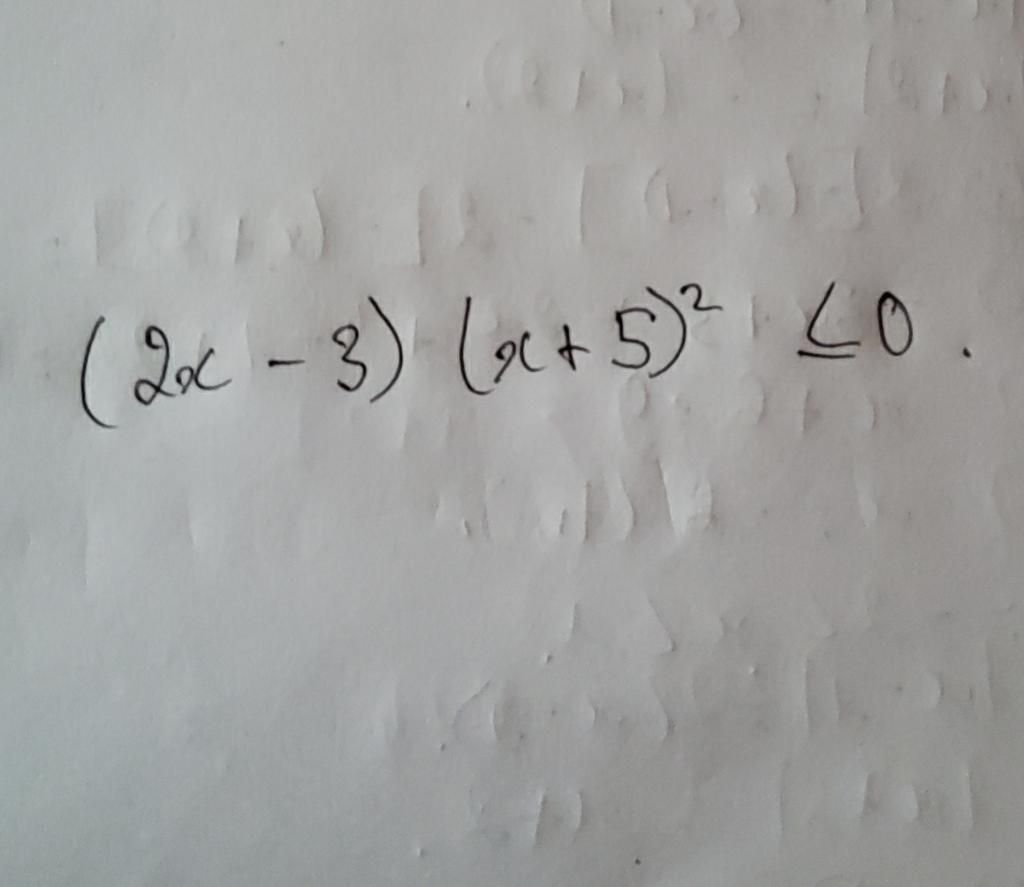 (2x - 3) (x + 5)² ≤ 0 .